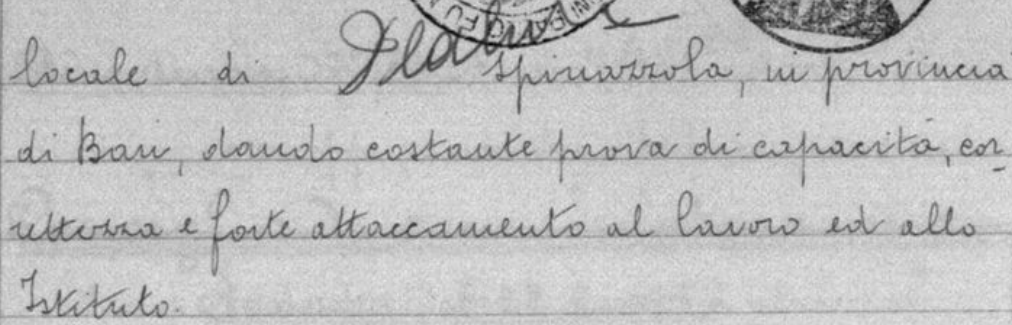 locale di Spinazzola, in provincia
di Bari, dando costante prova di capacità, cor
rettezza e forte attaccamento al lavoro ed allo
Istituto.